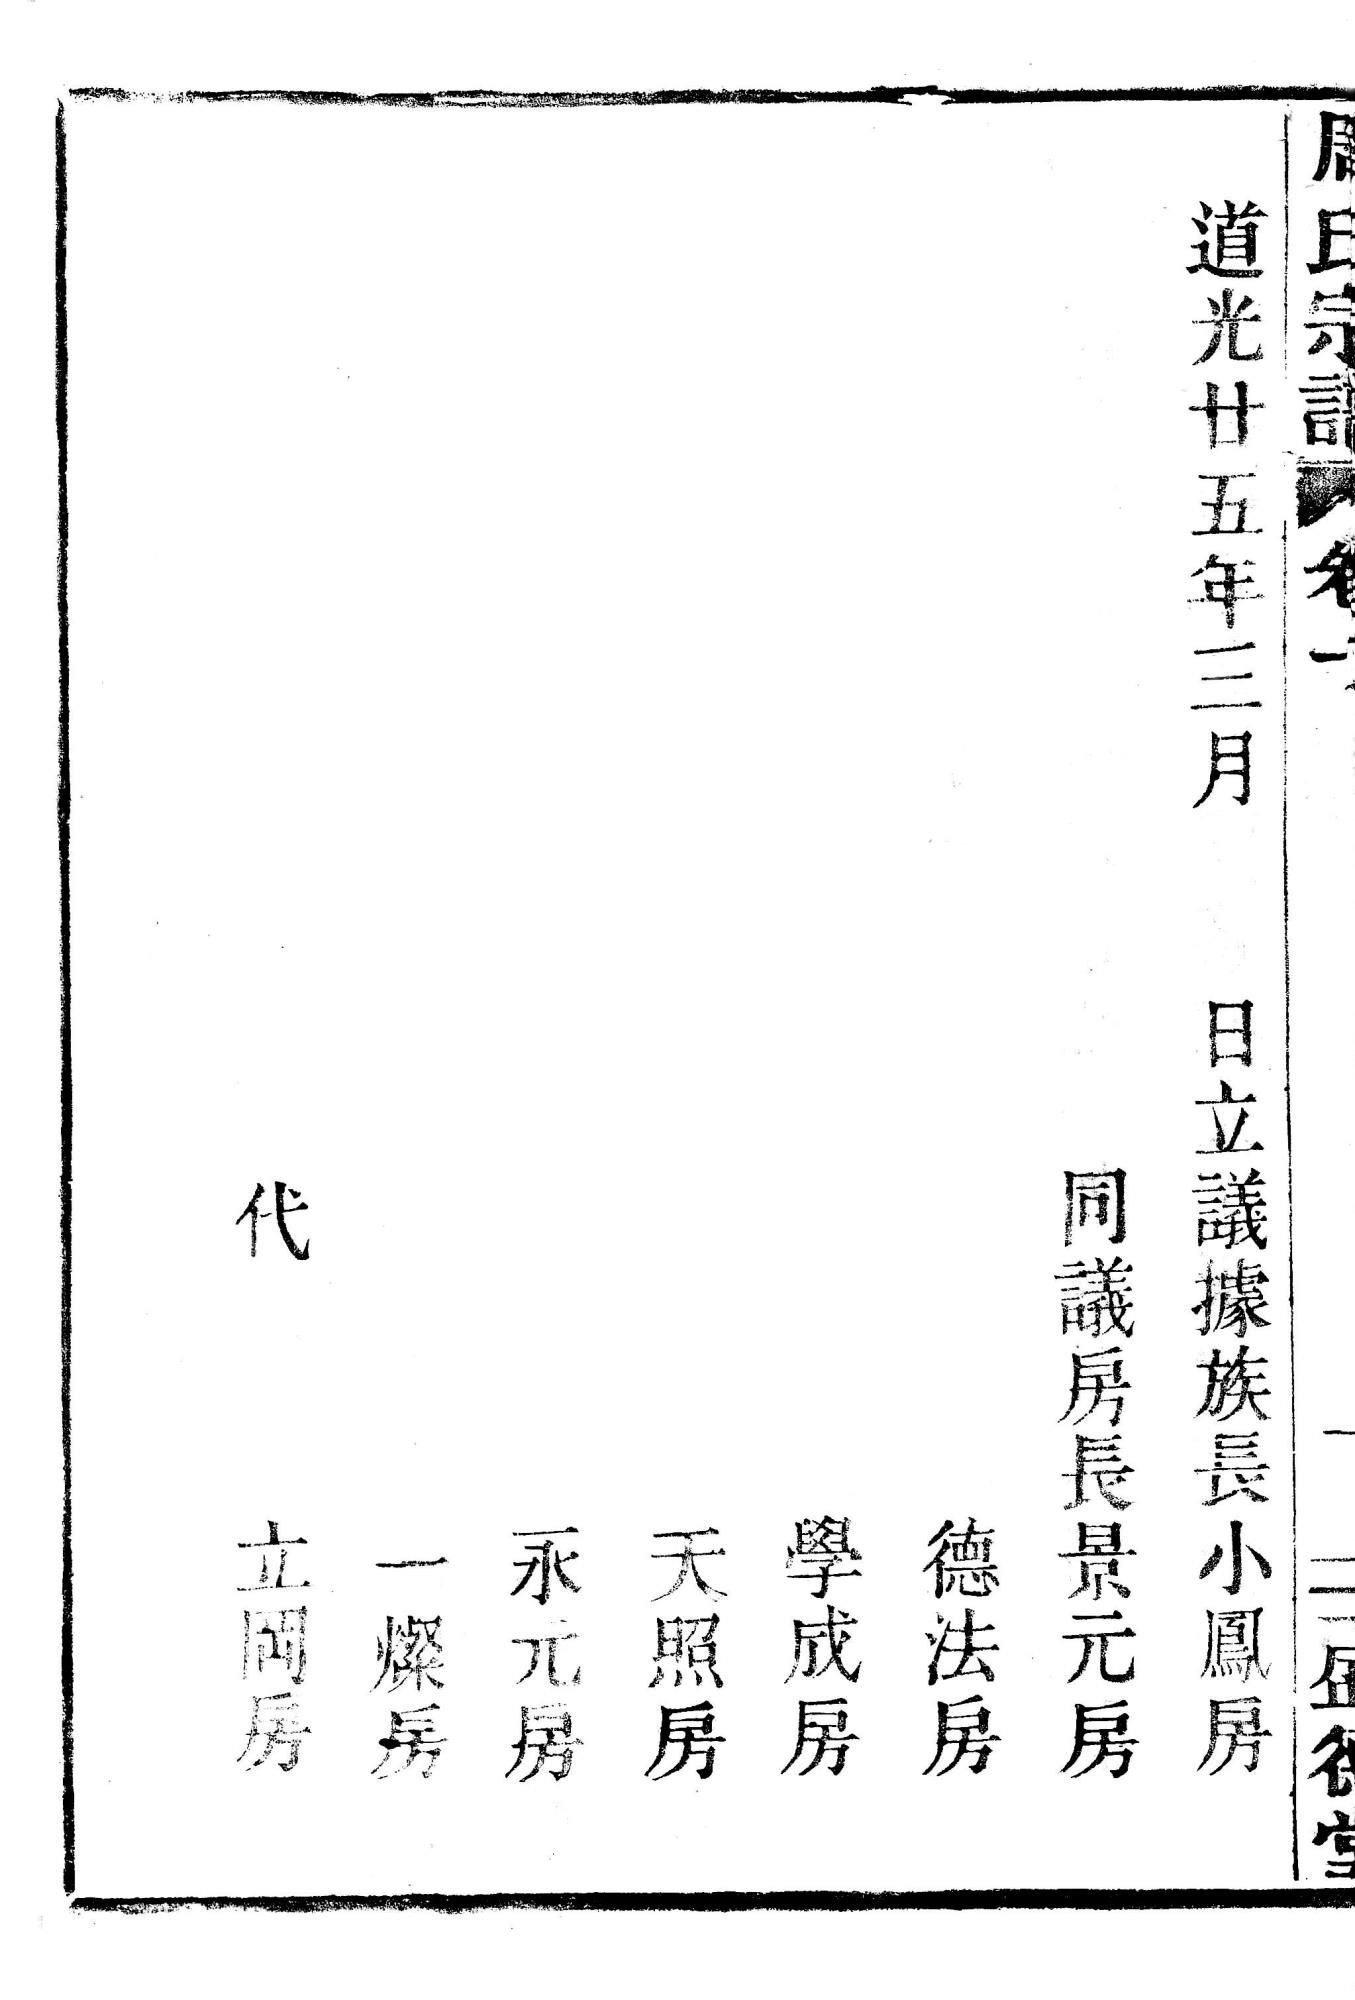 周氏宗譜 卷十 二 盛德堂
道光廿五年三月 日立議據族長小鳳房
同議房長景元房
德法房
學成房
天照房
永元房
一燦房
代 立岡房